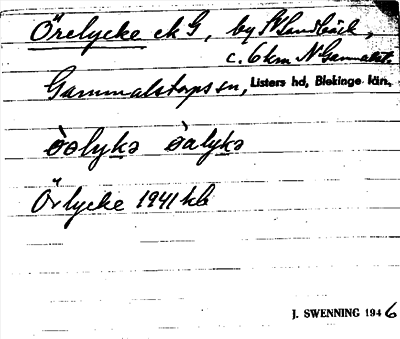 Örelycke ek G, by St Sandbäck,
c. 6 km N Gammalst.
Gammalstorps sn, Listers hd, Blekinge län.
Örlycke 1941 kb
J. SWENNING 1946